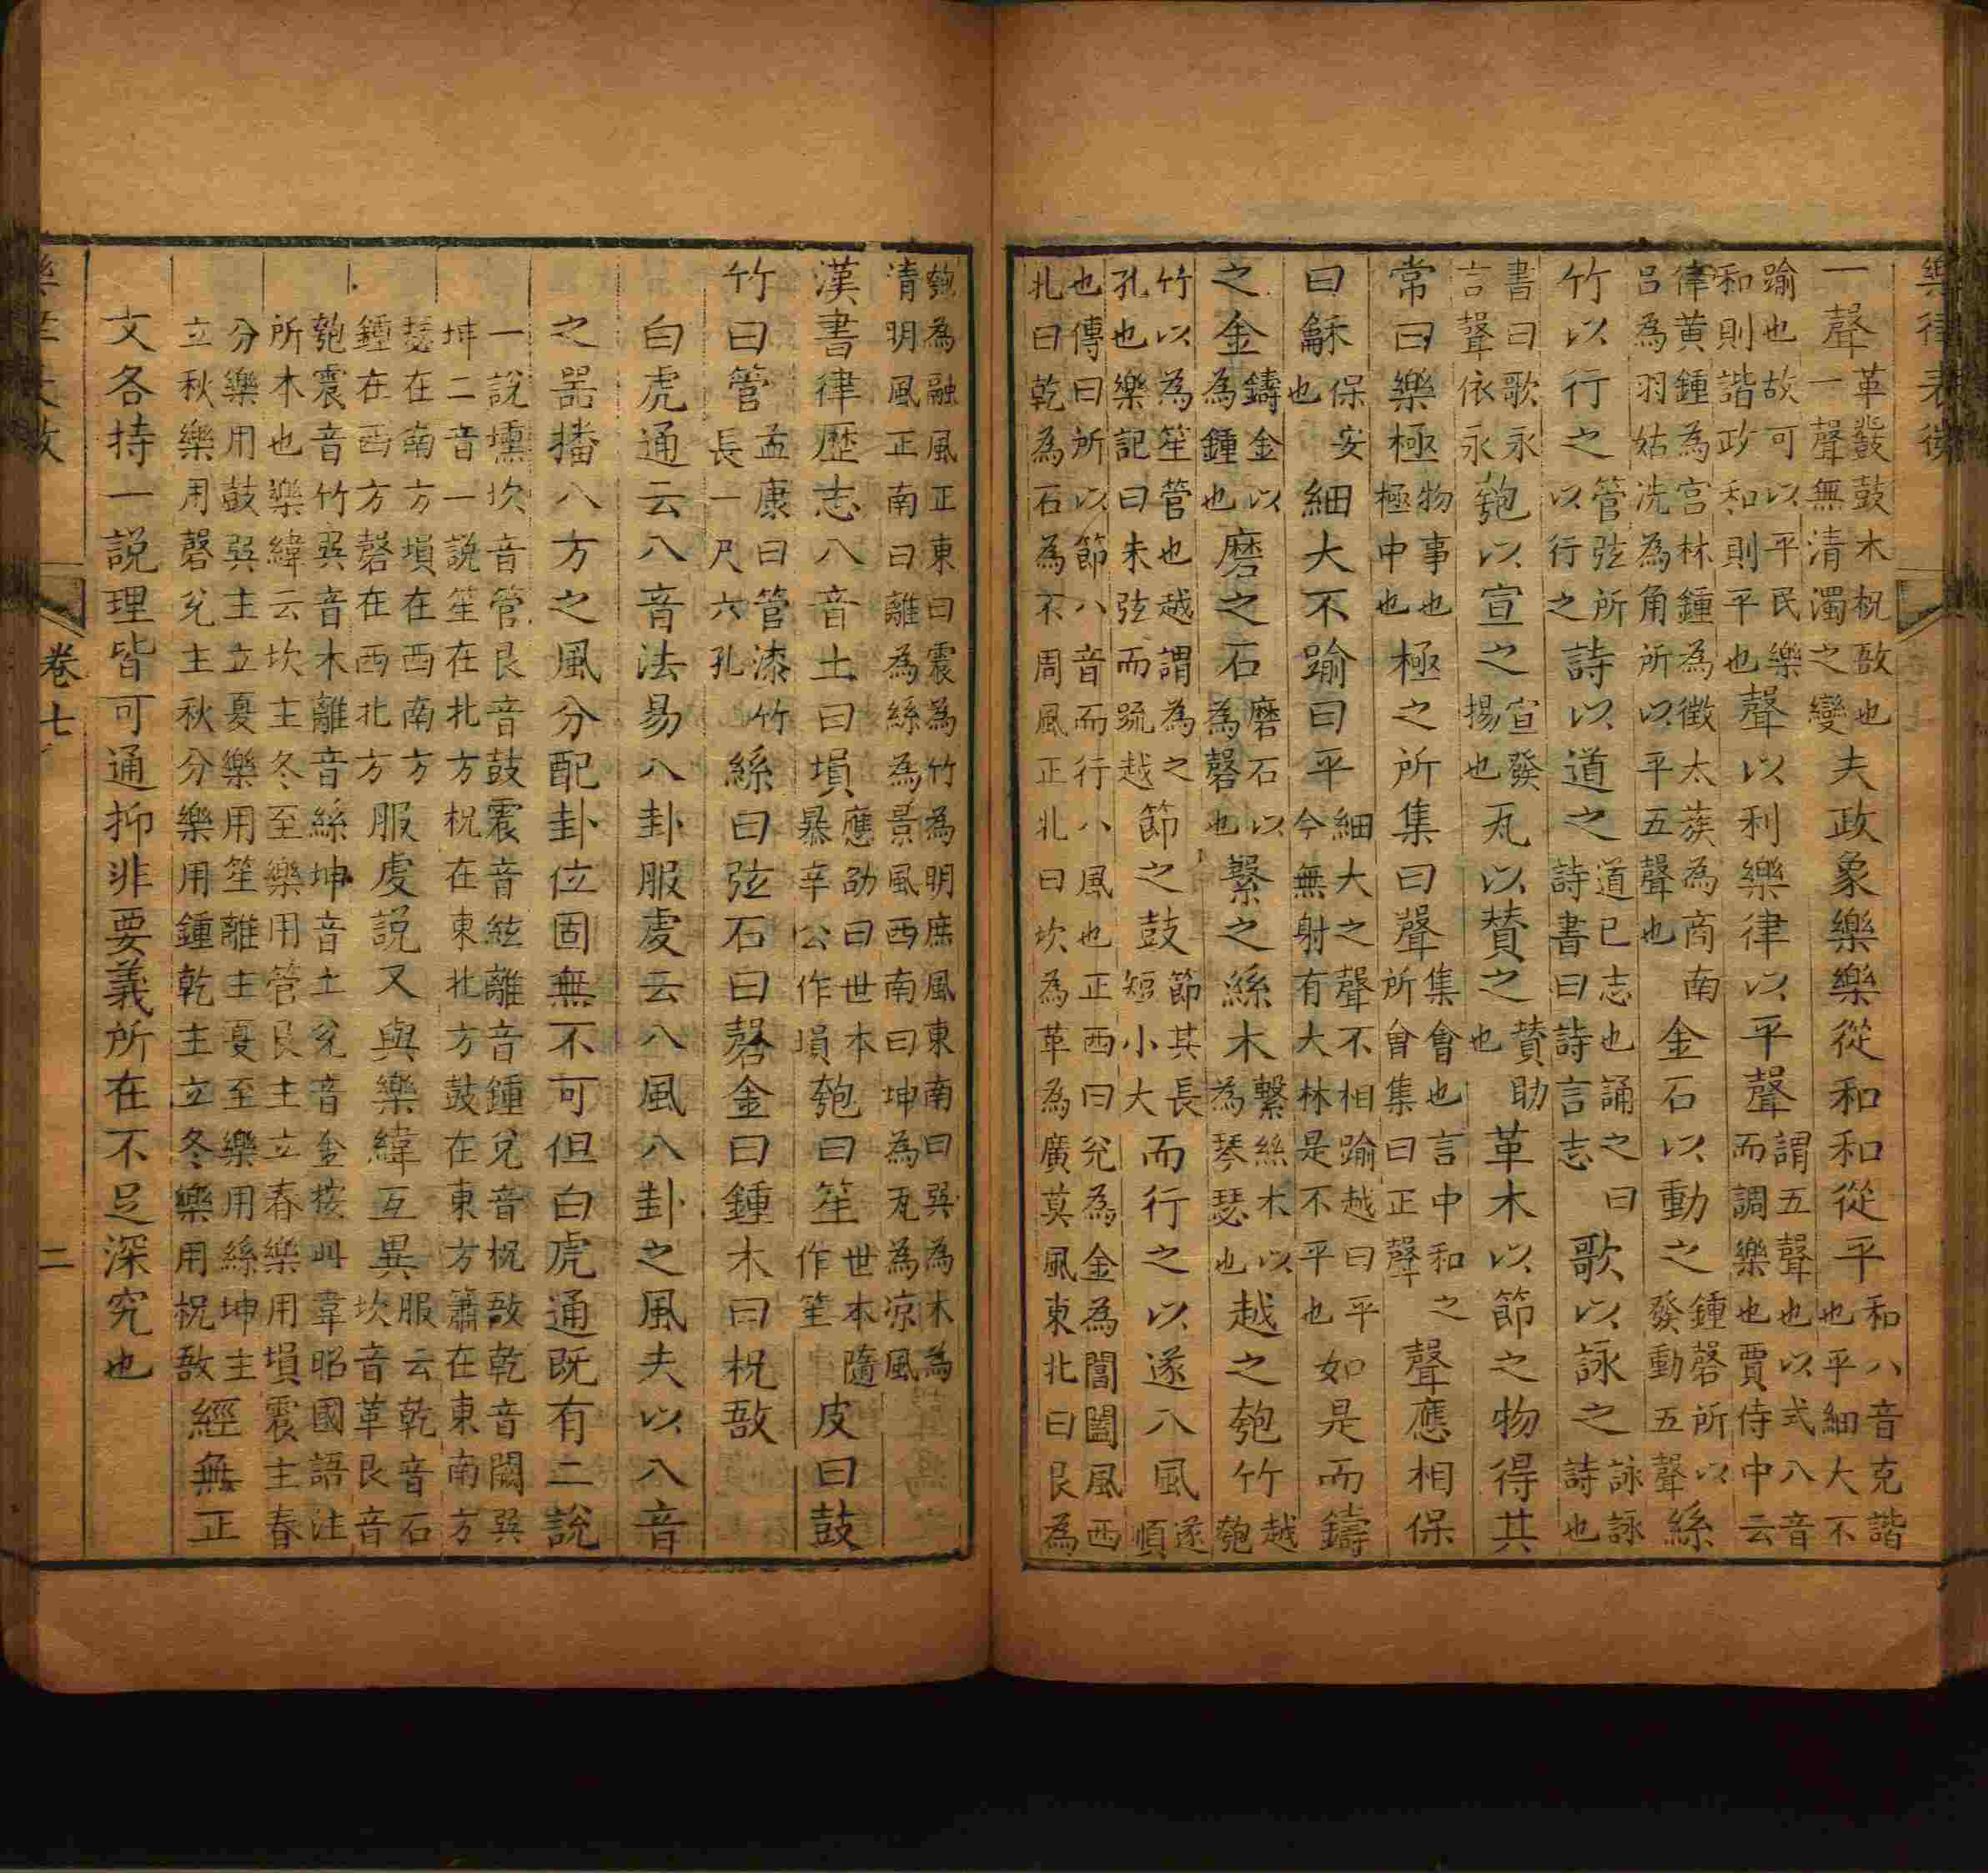 樂律表微
一聲革鼗鼓木柷敔也一聲無清濁之變夫政象樂樂從和和從平和八音克諧也平細大不
踰也故可以平民樂和則諧政和則平也聲以利樂律以平聲謂五聲也以式八音而調樂也賈侍中云
律黃鍾為宮林鍾為徵太蔟為商南呂為羽姑洗為角所以平五聲也金石以動之鍾磬所以發動五聲絲
竹以行之管弦所以行之詩以道之道已志也誦之曰詩書曰詩言志歌以詠之詠詠詩也
書曰歌永言聲依永匏以宣之宣發揚也瓦以贊之贊助也革木以節之物得其
常曰樂極物事也極中也極之所集曰聲集會也言中和之所會集曰正聲聲應相保
曰龢保安也細大不踰曰平細大之聲不相踰越曰平今無射有大林是不平也如是而鑄
之金鑄金以為鍾也磨之石磨石以為磬也繫之絲木繫絲木以為琴瑟也越之匏竹越匏
竹以為笙管也越謂為之孔也樂記曰朱弦而疏越節之鼓節其長短小大而行之以遂八風遂順
也傳曰所以節八音而行八風也正西曰兌為金為閶闔風西北曰乾為石為不周風正北曰坎為革為廣莫風東北曰艮為
匏為融風正東曰震為竹為明庶風東南曰巽為木為清明風正南曰離為絲為景風西南曰坤為瓦為凉風
漢書律歷志八音土曰塤應劭曰世本暴辛公作塤匏曰笙世本隨作笙皮曰鼓
竹曰管孟康曰管漆竹長一尺六孔絲曰弦石曰磬金曰鍾木曰柷敔
白虎通云八音法易八卦服虔云八風八卦之風夫以八音
之噐播八方之風分配卦位固無不可但白虎通既有二說
一說壎坎音管艮音鼓震音絃離音鍾兌音柷敔乾音闕巽坤二音一說笙在北方柷在東北方鼓在東方簫在東南方
瑟在南方塤在西南方鍾在西方磬在西北方服虔說又與樂緯互異服云乾音石坎音革艮音
匏震音竹巽音木離音絲坤音土兌音金按此韋昭國語注所木也樂緯云坎主冬至樂用管艮主立春樂用塤震主春
分樂用鼓巽主立夏樂用笙離主夏至樂用絲坤主立秋樂用磬兌主秋分樂用鍾乾主立冬樂用柷敔經無正
文各持一說理皆可通抑非要義所在不足深究也
卷七
二